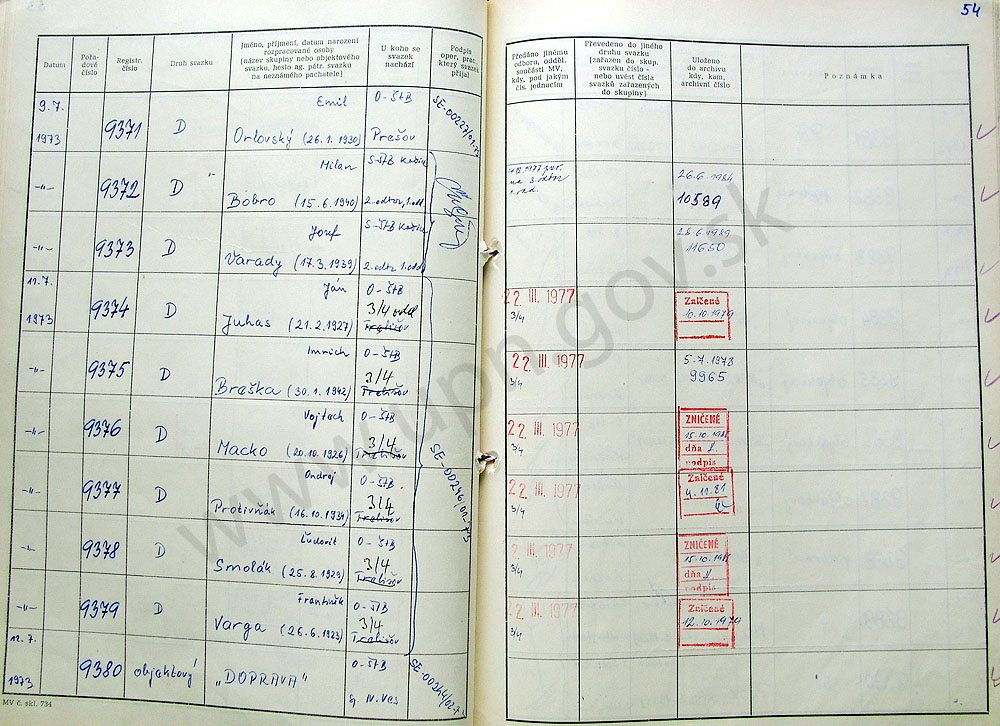 54
Datum
Pořadové číslo
Registr. číslo
Druh svazku
Jméno, příjmení, datum narození rozpracované osoby
(název skupiny nebo objektového svazku, heslo ag. pátr. svazku na neznámého pachatele)
U koho se svazek nachází
Podpis oper. prac., který svazek přijal
Předáno jinému odboru, odděl. součásti MV, kdy, pod jakým čís. jednacím
Převedeno do jiného druhu svazku (zařazen do skup. svazku číslo - nebo uvést čísla svazků zařazených do skupiny)
Uloženo do archivu kdy, kam, archivní číslo
Poznámka
9.7. 1973 9371 D Emil Orlovský (26.1.1930) O-ŠtB Prešov
-"- 9372 D Milan Bobro (15.6.1940) S-ŠtB 2. odbor, 1. odd. 26.6.1984 10589
-"- 9373 D Jozef Varady (17.3.1939) S-ŠtB 1. odd. 11650
11.7. 1973 9374 D Ján Juhas (21.2.1927) O-ŠtB 3/4 Trebišov 22 III. 1977 3/4 Zničené 10.10.1979
-"- 9375 D Imrich Breška (30.1.1942) O-ŠtB 3/4 Trebišov 22 III. 1977 3/4 5.7.1978 9965
-"- 9376 D Vojtech Macko (20.10.1926) O-ŠtB 3/4 Trebišov 22 III. 1977 3/4 ZNIČENÉ dňa podpis
-"- 9377 D Ondrej Protivňák (16.10.1934) O-ŠtB 3/4 Trebišov 22 III. 1977 3/4 Zničené 4.11.81
-"- 9378 D Ľudovít Smolák (25.8.1929) O-ŠtB 3/4 Trebišov 22 III. 1977 3/4 ZNIČENÉ dňa podpis
-"- 9379 D František Varga (26.6.1923) O-ŠtB 3/4 Trebišov 22 III. 1977 3/4 Zničené 12.10.1979
12.7. 1973 9380 objektový „DOPRAVA" O-ŠtB Sp. N. Ves
MV č. skl. 734
www.upn.gov.sk